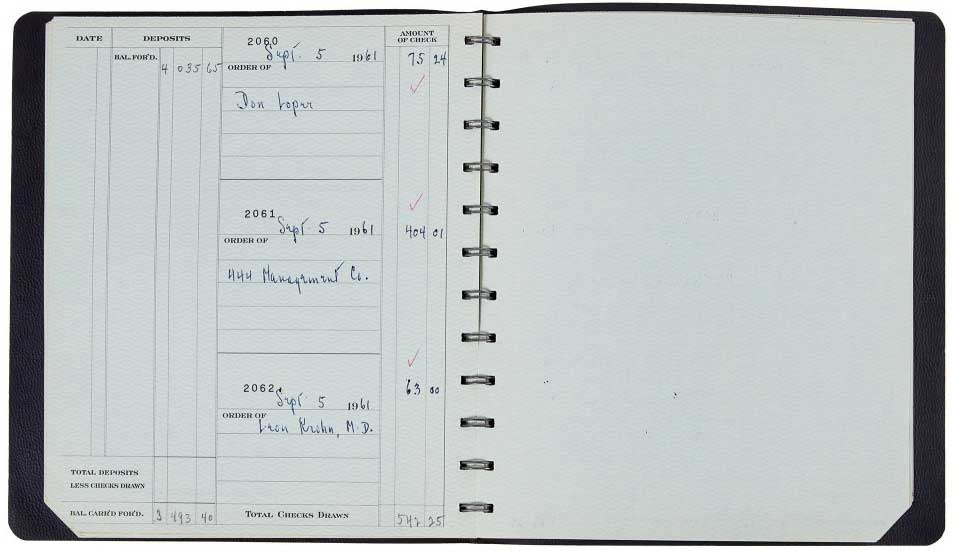 DATE DEPOSITS AMOUNT OF CHECK
2060
Sept. 5 1961 75 24
BAL. FOR'D. 4 035 65 ORDER OF
Don Loper
2061
Sept 5 1961 404 01
ORDER OF
444 Management Co.
2062
63 00
Sept 5 1961
ORDER OF
Leon Krohn, M.D.
TOTAL DEPOSITS
LESS CHECKS DRAWN
BAL. CARR'D FOR'D. 3 493 40 TOTAL CHECKS DRAWN 542 25